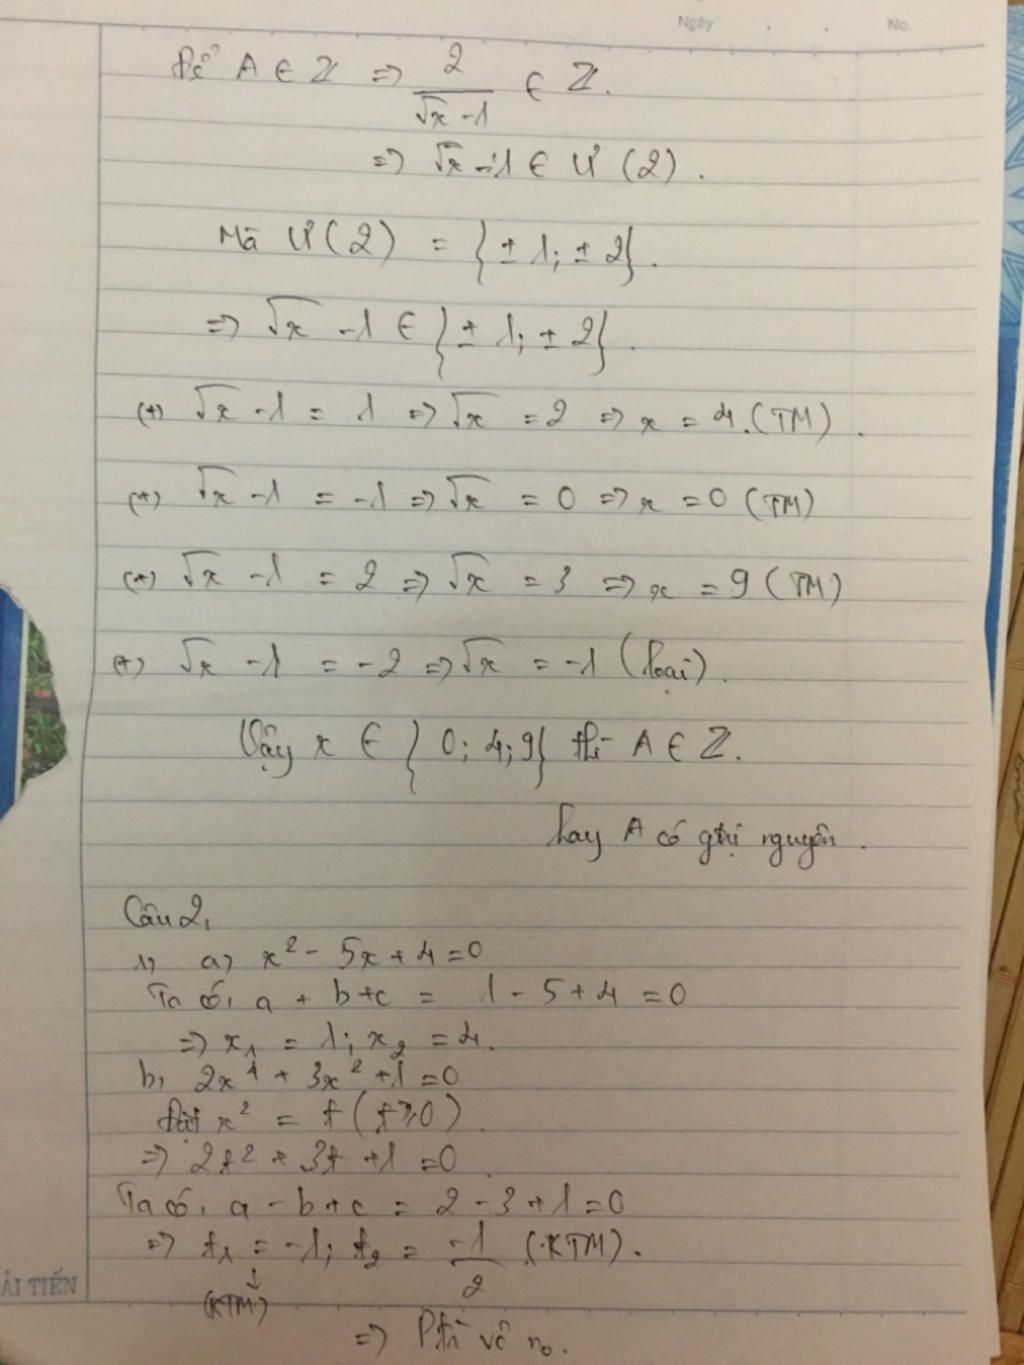 Ngày . . No.
Để A ∈ Z => 2/(√x - 1) ∈ Z.
=> √x - 1 ∈ Ư(2).
Mà Ư(2) = {± 1; ± 2}.
=> √x - 1 ∈ {± 1; ± 2}.
(+) √x - 1 = 1 => √x = 2 => x = 4. (TM).
(+) √x - 1 = -1 => √x = 0 => x = 0 (TM)
(+) √x - 1 = 2 => √x = 3 => x = 9 (TM)
(+) √x - 1 = -2 => √x = -1 (loại).
Vậy x ∈ {0; 4; 9} thì A ∈ Z.
hay A có gtrị nguyên.
Câu 2,
1, a, x² - 5x + 4 = 0
Ta có, a + b + c = 1 - 5 + 4 = 0
=> x₁ = 1; x₂ = 4.
b, 2x⁴ + 3x² + 1 = 0
Đặt x² = t (t ≥ 0).
=> 2t² + 3t + 1 = 0
Ta có, a - b + c = 2 - 3 + 1 = 0
=> t₁ = -1; t₂ = -1/2 (KTM).
(KTM)
=> Ptr vô no.
ẢI TIẾN